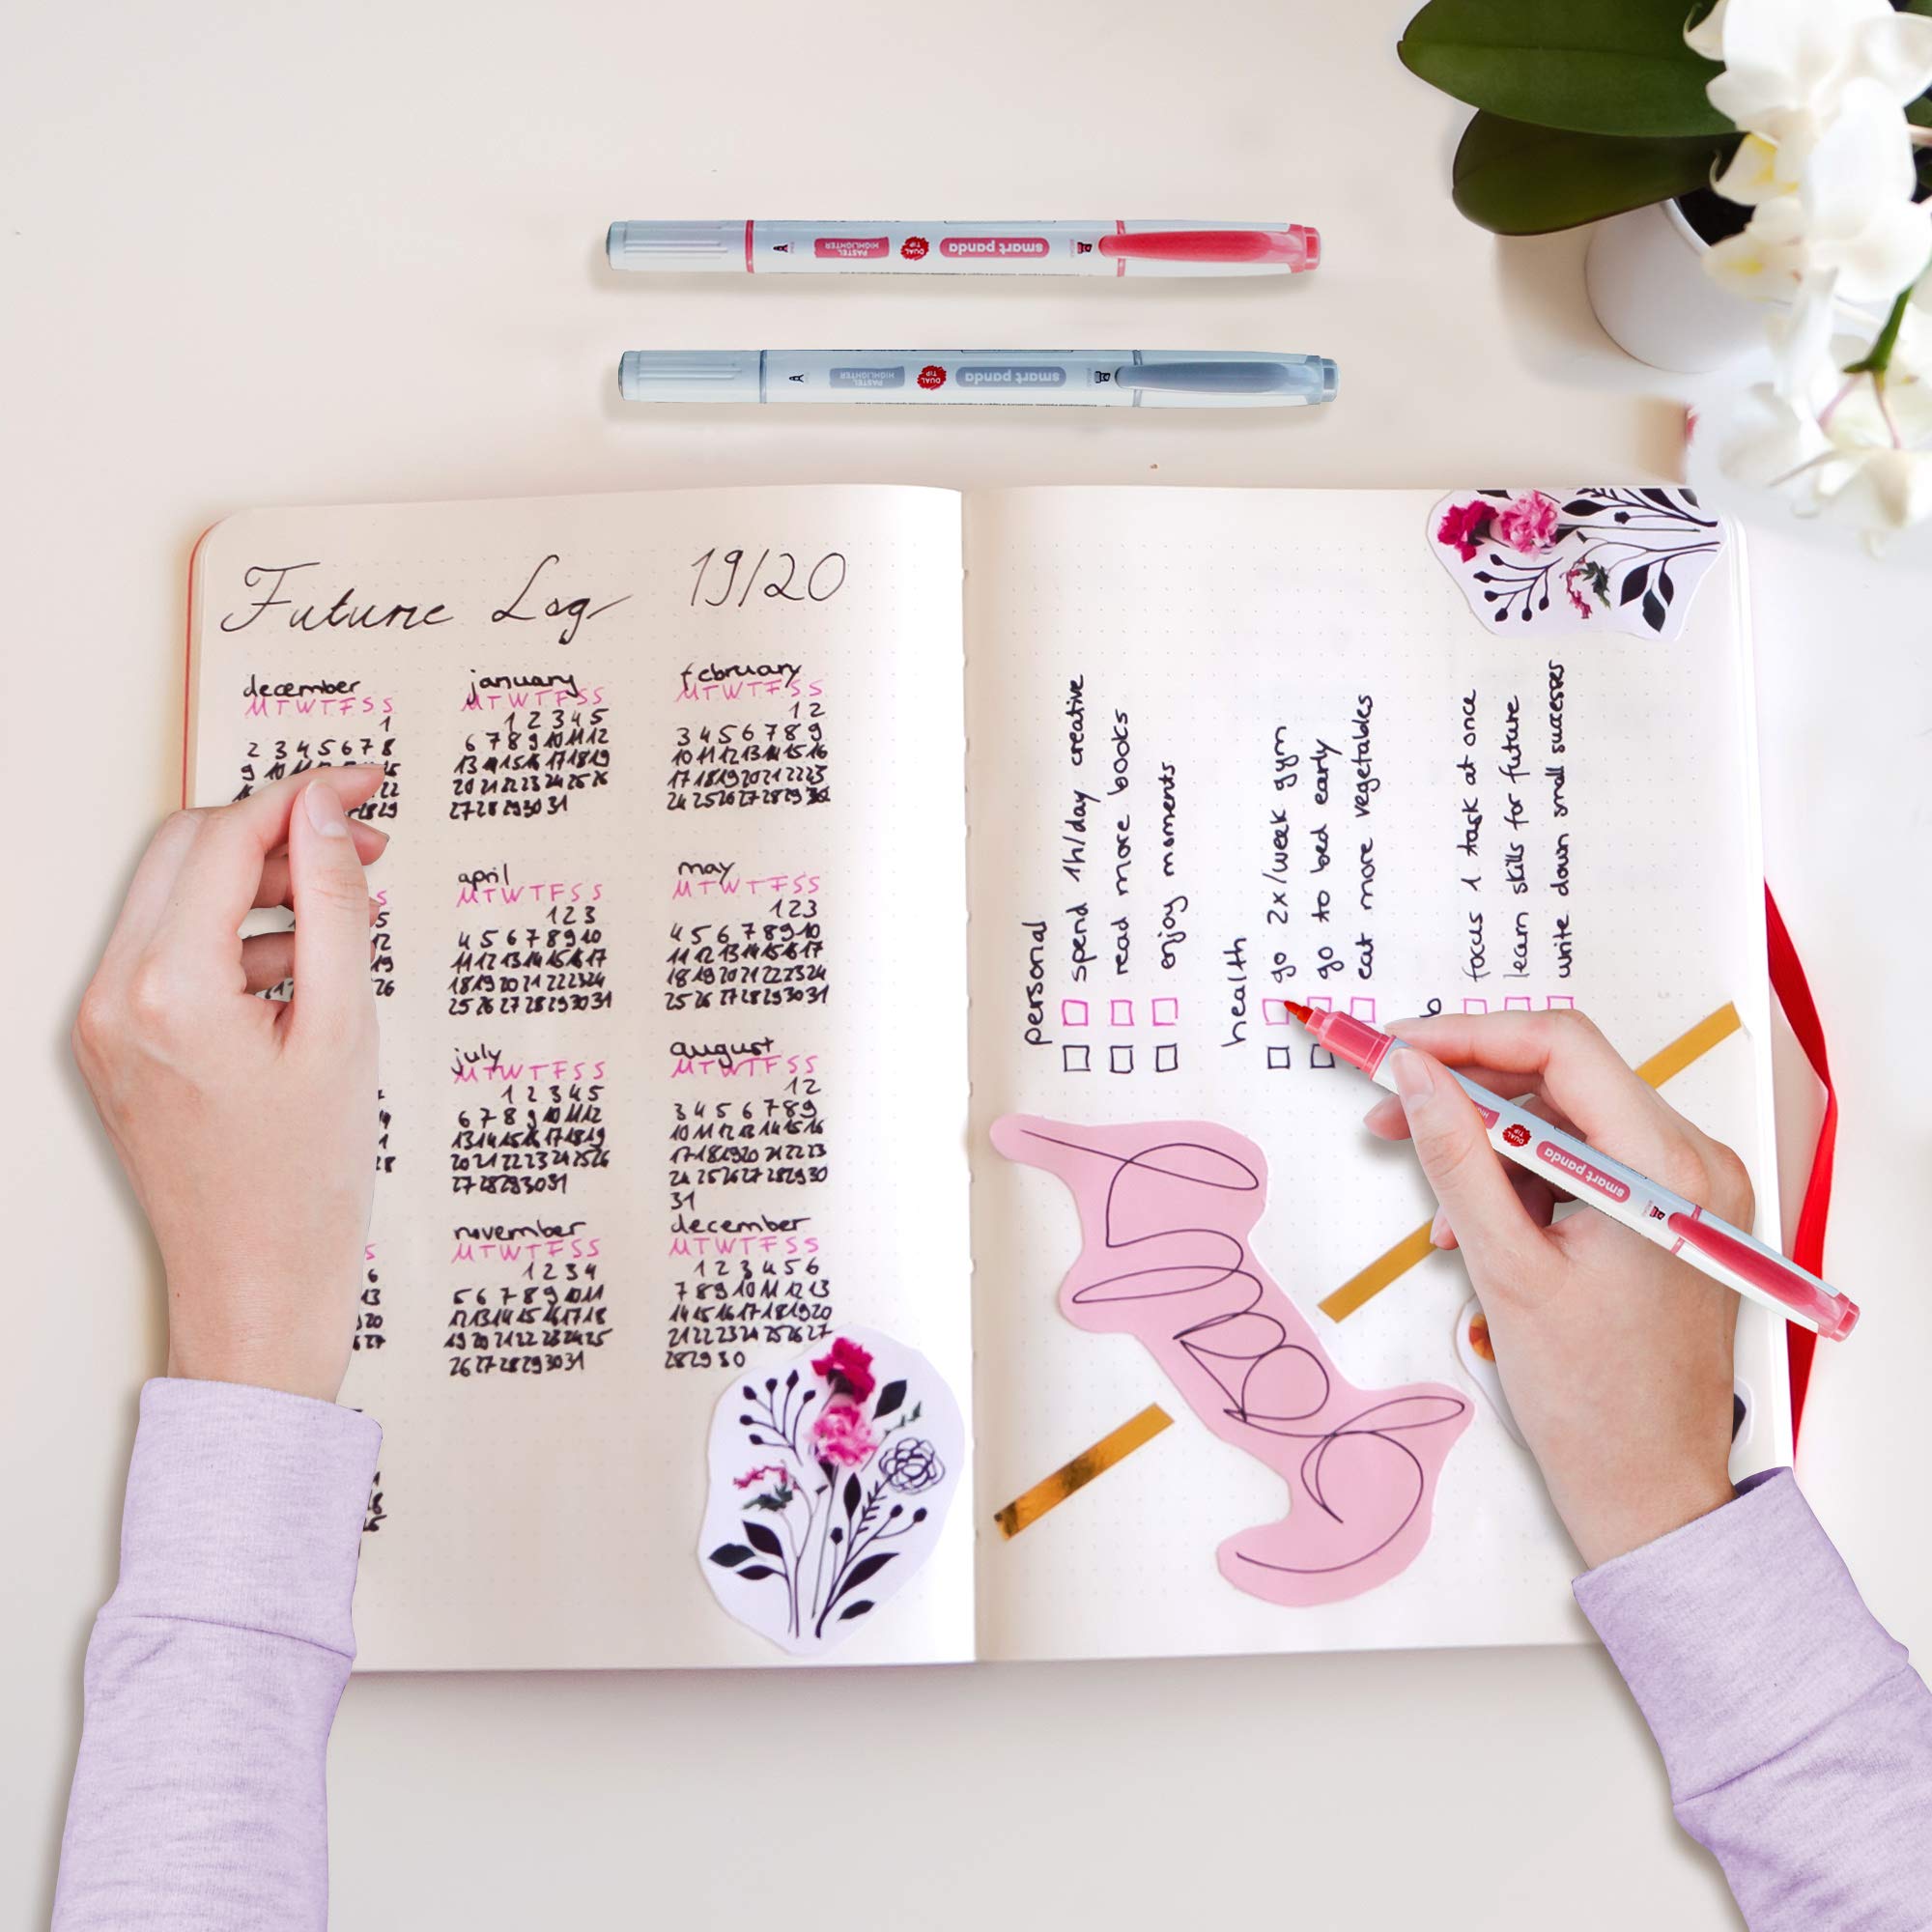 PASTEL HIGHLIGHTER DUAL TIP smart panda
PASTEL HIGHLIGHTER DUAL TIP smart panda
Future Log 19/20
december
M T W T F S S
1
2 3 4 5 6 7 8
9 10
22
28 29
january
M T W T F S S
1 2 3 4 5
6 7 8 9 10 11 12
13 14 15 16 17 18 19
20 21 22 23 24 25 26
27 28 29 30 31
february
M T W T F S S
1 2
3 4 5 6 7 8 9
10 11 12 13 14 15 16
17 18 19 20 21 22 23
24 25 26 27 28 29 30
S
5
12
19
26
april
M T W T F S S
1 2 3
4 5 6 7 8 9 10
11 12 13 14 15 16 17
18 19 20 21 22 23 24
25 26 27 28 29 30 31
may
M T W T F S S
1 2 3
4 5 6 7 8 9 10
11 12 13 14 15 16 17
18 19 20 21 22 23 24
25 26 27 28 29 30 31
july
M T W T F S S
1 2 3 4 5
6 7 8 9 10 11 12
13 14 15 16 17 18 19
20 21 22 23 24 25 26
27 28 29 30 31
august
M T W T F S S
1 2
3 4 5 6 7 8 9
10 11 12 13 14 15 16
17 18 19 20 21 22 23
24 25 26 27 28 29 30
31
S
6
13
20
27
november
M T W T F S S
1 2 3 4
5 6 7 8 9 10 11
12 13 14 15 16 17 18
19 20 21 22 23 24 25
26 27 28 29 30 31
december
M T W T F S S
1 2 3 4 5 6
7 8 9 10 11 12 13
14 15 16 17 18 19 20
21 22 23 24 25 26 27
28 29 30
personal
spend 1h/day creative
read more books
enjoy moments
health
go 2x/week gym
go to bed early
eat more vegetables
b
focus 1 task at once
learn skills for future
write down small successes
DUAL TIP smart panda